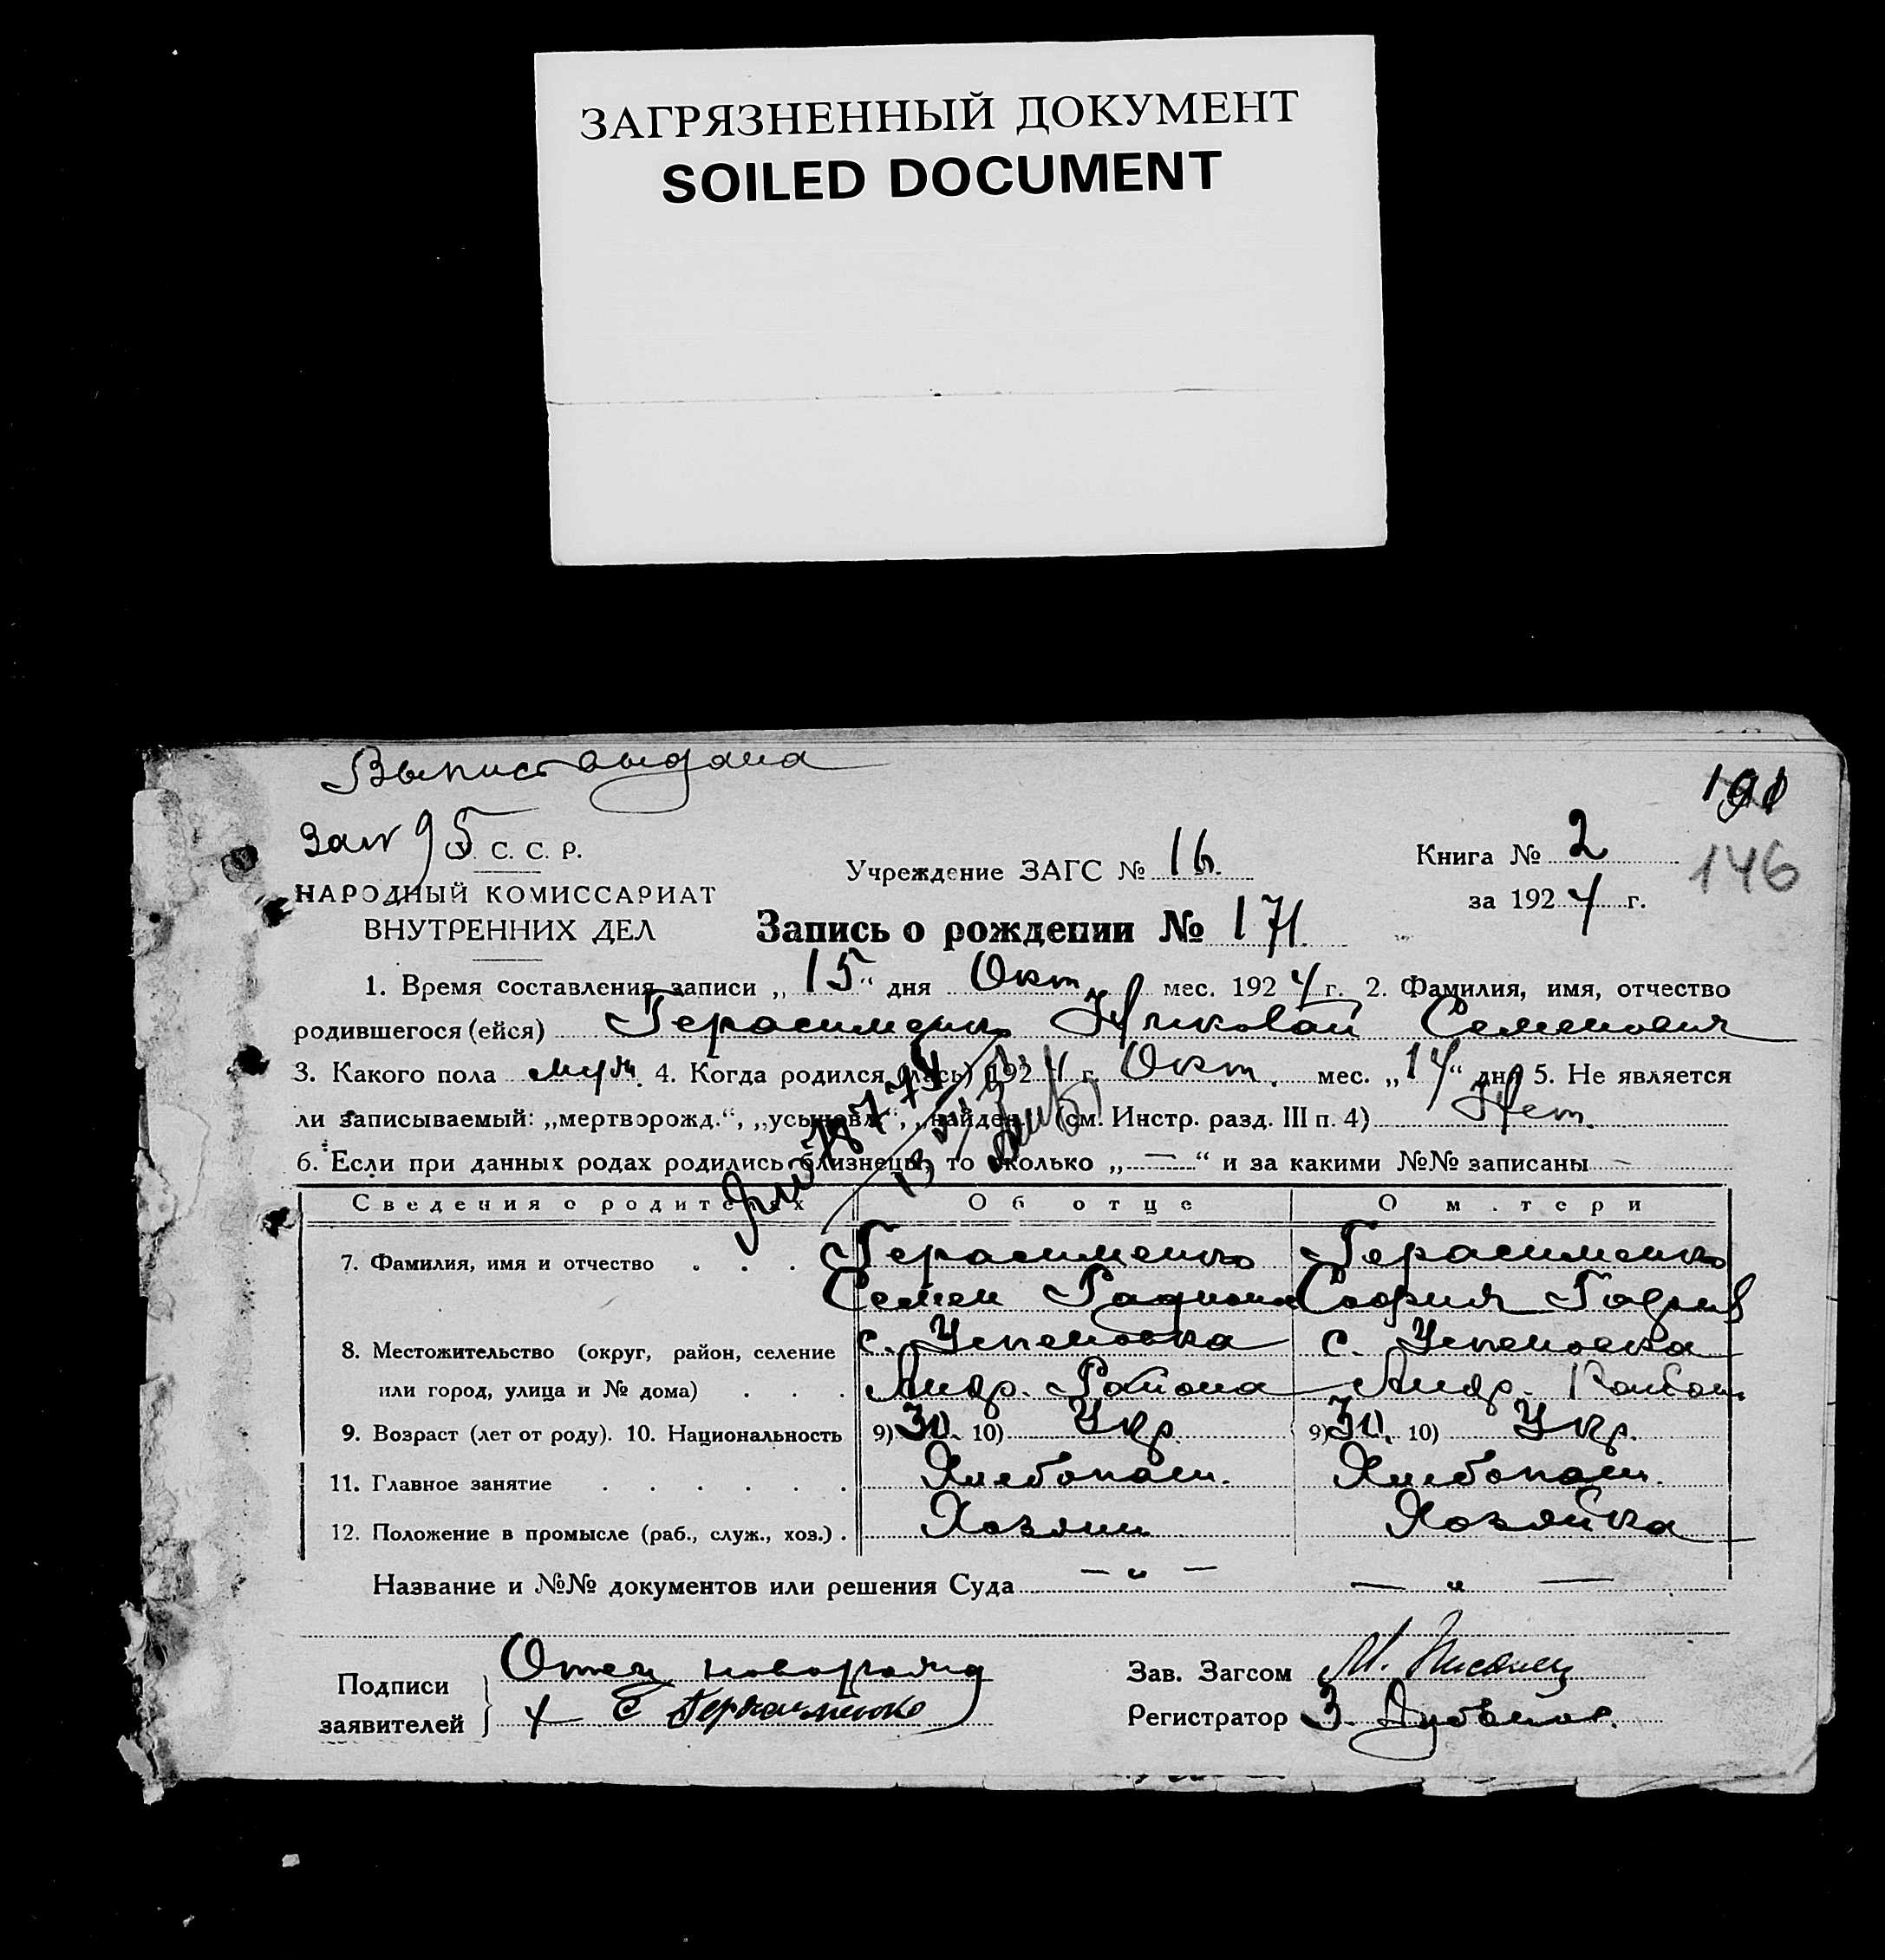 ЗАГРЯЗНЕННЫЙ ДОКУМЕНТ
SOILED DOCUMENT
Выпись выдана
191
146
95
С. С. Р.
НАРОДНЫЙ КОМИССАРИАТ
ВНУТРЕННИХ ДЕЛ
Учреждение ЗАГС № 16.
Книга № 2
за 1924 г.
Запись о рождении № 171.
1. Время составления записи „15“ дня Окт. мес. 1924 г. 2. Фамилия, имя, отчество
родившегося (ейся) Герасименко Николай Семенович
3. Какого пола муж. 4. Когда родился (лась) 1924 г. Окт. мес. „14“ дня 5. Не является
ли записываемый: „мертворожд.“, „усыновл“, „найден.“ (см. Инстр. разд. III п. 4) Нет.
6. Если при данных родах родились близнецы, то сколько „—“ и за какими №№ записаны —
Сведения о родителях Об отце О м.тери
7. Фамилия, имя и отчество . . . Герасименко Герасименко
Семен Радиона София Гаврив
8. Местожительство (округ, район, селение с. Успеновка с. Успеновка
или город, улица и № дома) . . . Андр. Района Андр. Район.
9. Возраст (лет от роду). 10. Национальность 9) 30. 10) Укр. 9) 30. 10) Укр.
11. Главное занятие . . . . . . Хлебопаш. Хлебопаш.
12. Положение в промысле (раб., служ., хоз.) . Хозяин Хозяйка
Название и №№ документов или решения Суда — „ — — „ —
Подписи
заявителей
Отец новорожд
+ С Герасименко
Зав. Загсом М.
Регистратор З.